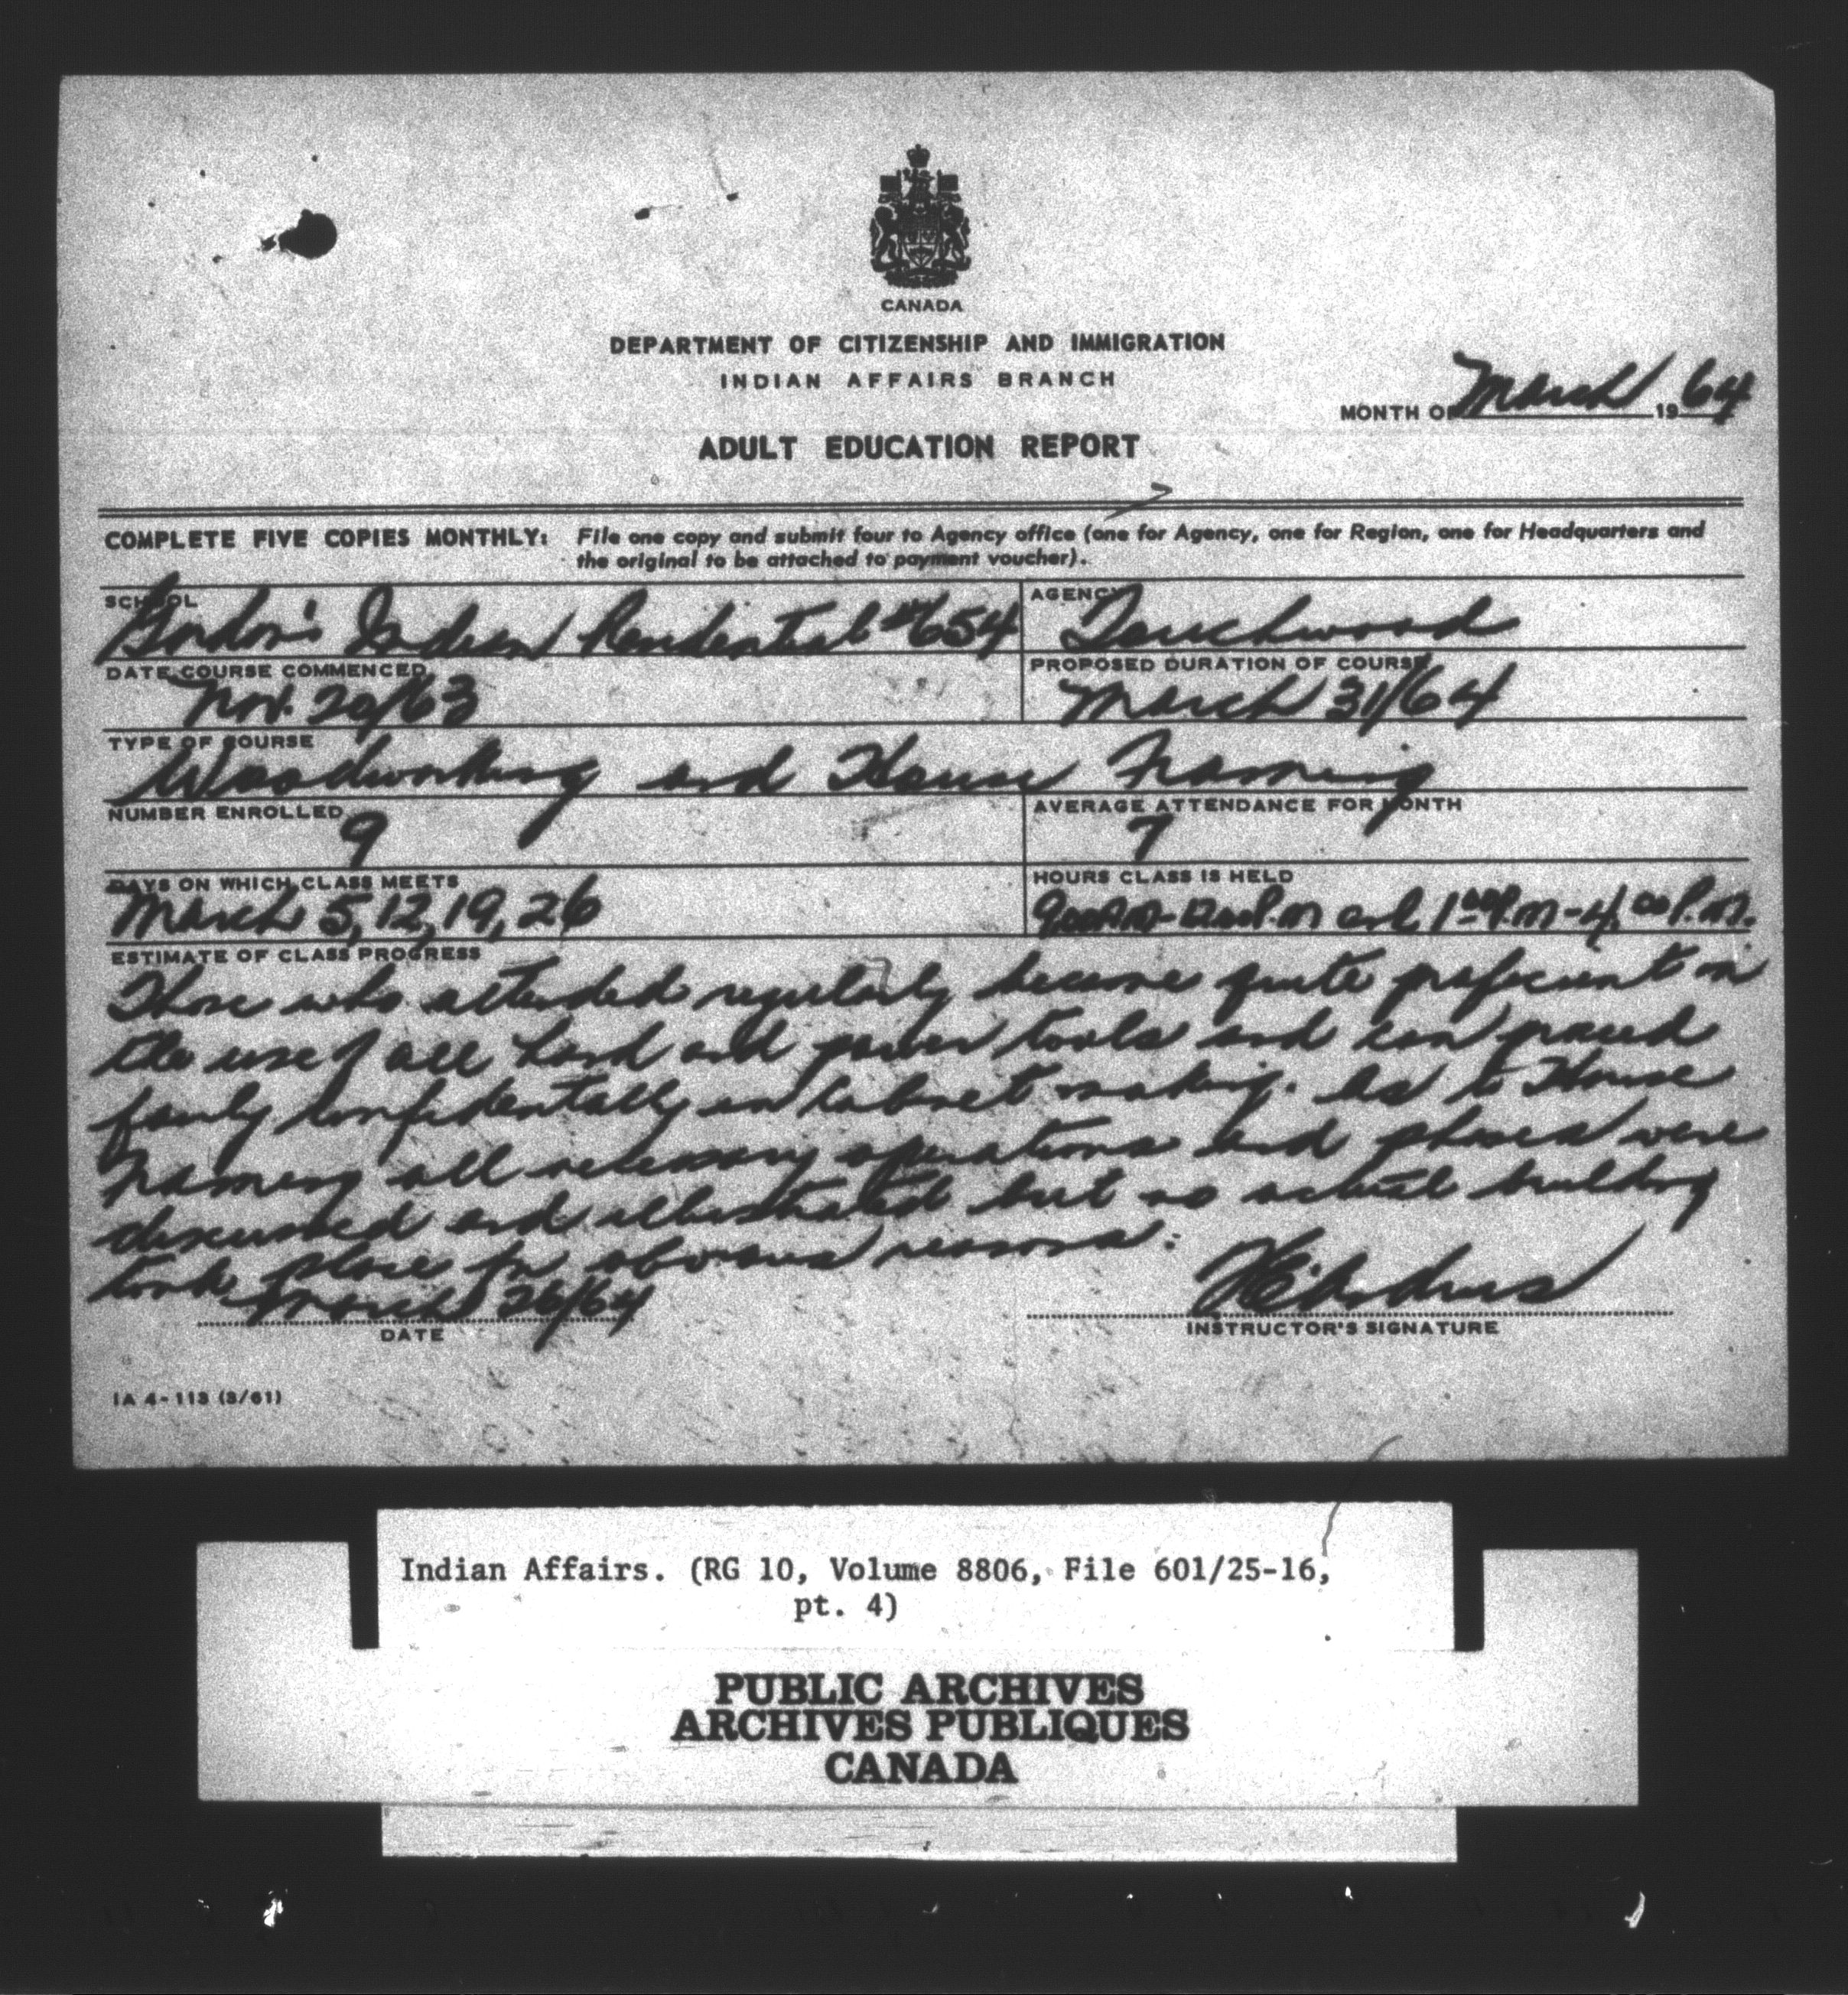 CANADA
DEPARTMENT OF CITIZENSHIP AND IMMIGRATION
INDIAN AFFAIRS BRANCH
MONTH OF March 19 64
ADULT EDUCATION REPORT
COMPLETE FIVE COPIES MONTHLY: File one copy and submit four to Agency office (one for Agency, one for Region, one for Headquarters and
the original to be attached to payment voucher).
SCHOOL
Gordon's Indian Residential #654
AGENCY
Touchwood
DATE COURSE COMMENCED
Nov. 20/63
PROPOSED DURATION OF COURSE
March 31/64
TYPE OF COURSE
Woodworking and House Framing
NUMBER ENROLLED
9
AVERAGE ATTENDANCE FOR MONTH
7
DAYS ON WHICH CLASS MEETS
March 5, 12, 19, 26
HOURS CLASS IS HELD
9:00 AM - 12:00 P.M and 1:00 P.M - 4:00 P.M.
ESTIMATE OF CLASS PROGRESS
Those who attended regularly became quite proficient in
the use of all hand and power tools and can proceed
fairly confidentally in cabinet making. As to House
Framing all necessary operations and phases were
discussed and illustrated but no actual building
took place for obvious reasons.
March 26/64
DATE
INSTRUCTOR'S SIGNATURE
IA 4-113 (3/61)
Indian Affairs. (RG 10, Volume 8806, File 601/25-16,
pt. 4)
PUBLIC ARCHIVES
ARCHIVES PUBLIQUES
CANADA